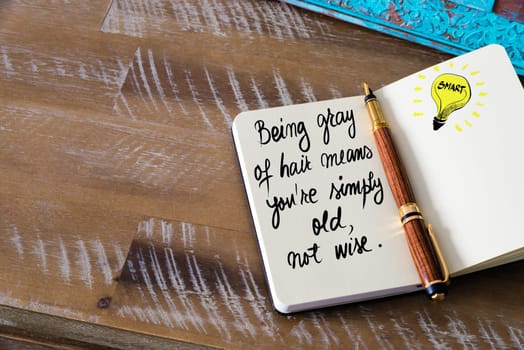 Being gray
of hair means
you're simply
old,
not wise.
SMART